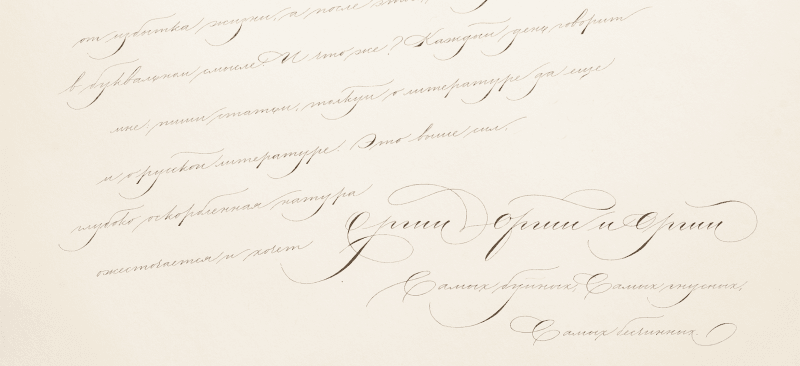 от избытка жизни, а после этой,
в буквальном смысле. И что же? Каждый день говорит
мне, пиши статьи, толкуй о литературе да еще
и о русской литературе. Это выше сил.
глубоко оскорбленная натура
ожесточается и хочет
Оргии, Оргии и Оргии
Самых буйных, Самых гнусных,
Самых бесчинных.